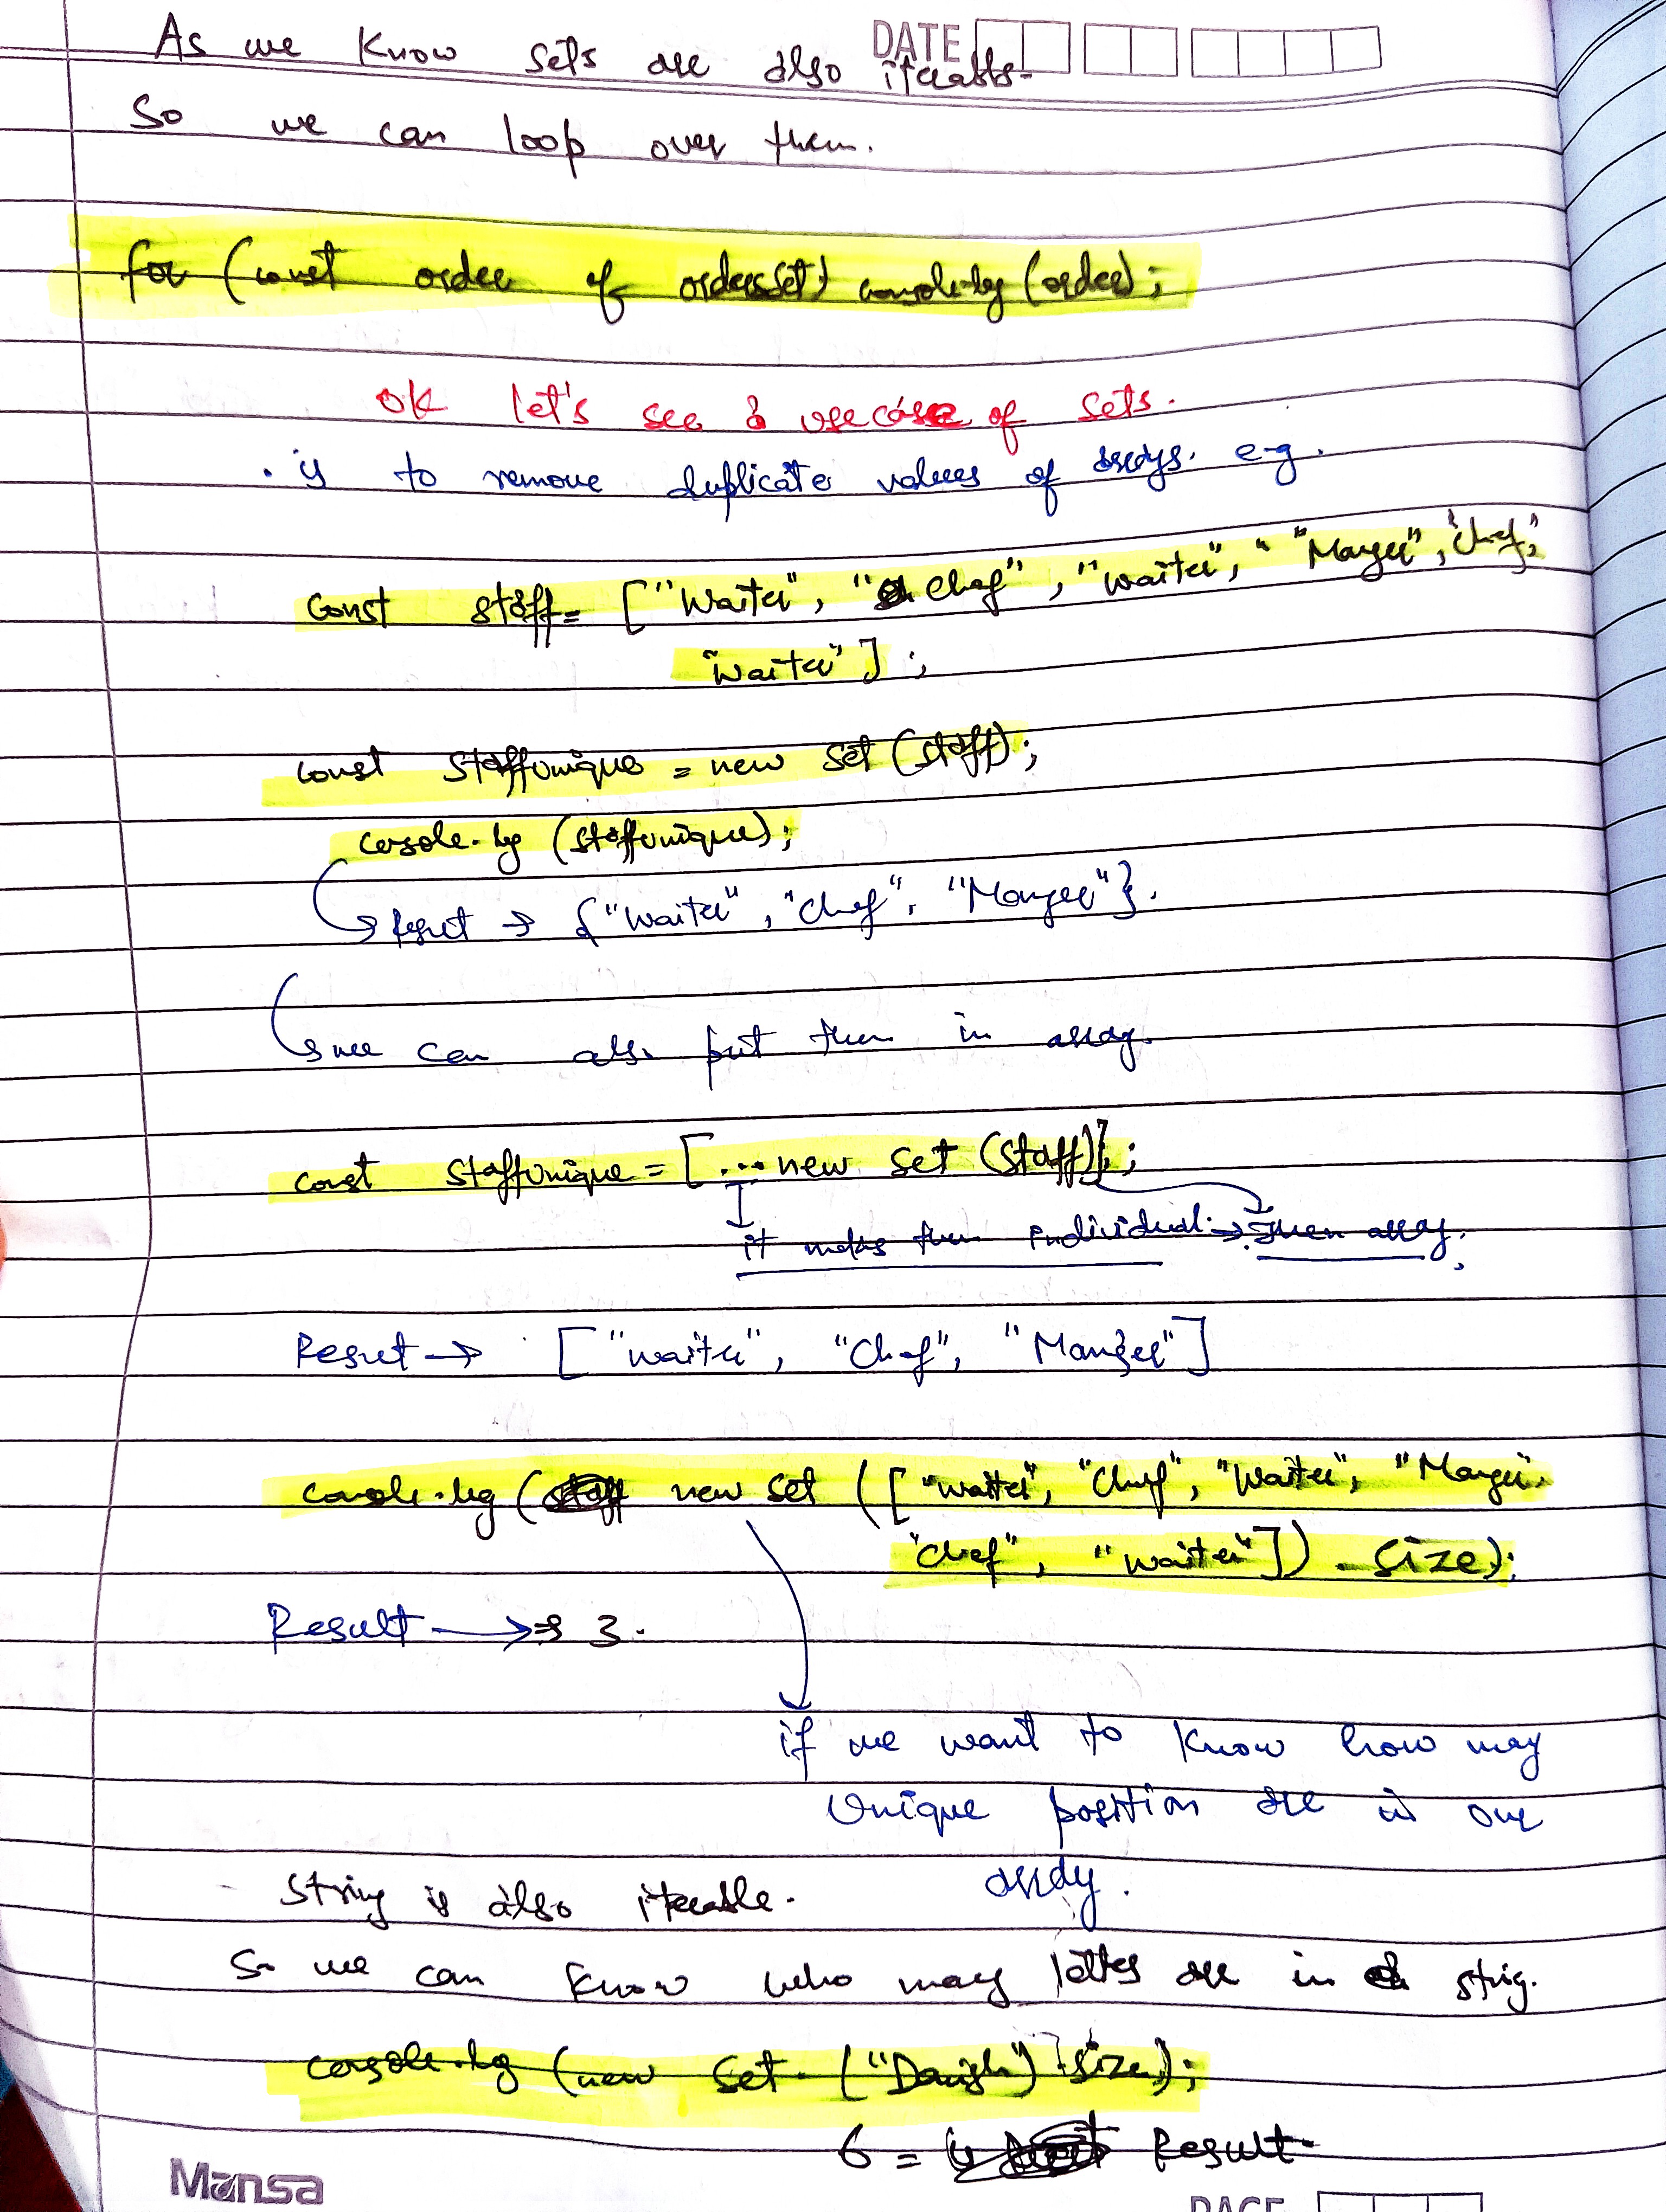 DATE
As we know sets are also iterable.
So we can loop over them.
for (const order of ordersSet) console.log (order);
OK let's see a usecase of sets.
. is to remove duplicate values of arrays. e.g.
const staff = ["Waiter", "Chef", "Waiter", "Manger", "Chef",
"Waiter"];
const staffunique = new set (staff);
console.log (staffunique);
Result → {"Waiter", "Chef", "Manger"}.
we can also put them in array.
const staffUnique = [...new set (staff)];
it makes them individual. → then array.
Result → ["Waiter", "Chef", "Manger"]
console.log (new set (["Waiter", "Chef", "Waiter", "Manger",
"Chef", "Waiter"]).size);
Result → 3.
if we want to know how may
unique position are in our
array.
- String is also iterable.
So we can know who may letters are in strig.
console.log (new set ("Danish").size);
6 = Result
Mansa
PAGE